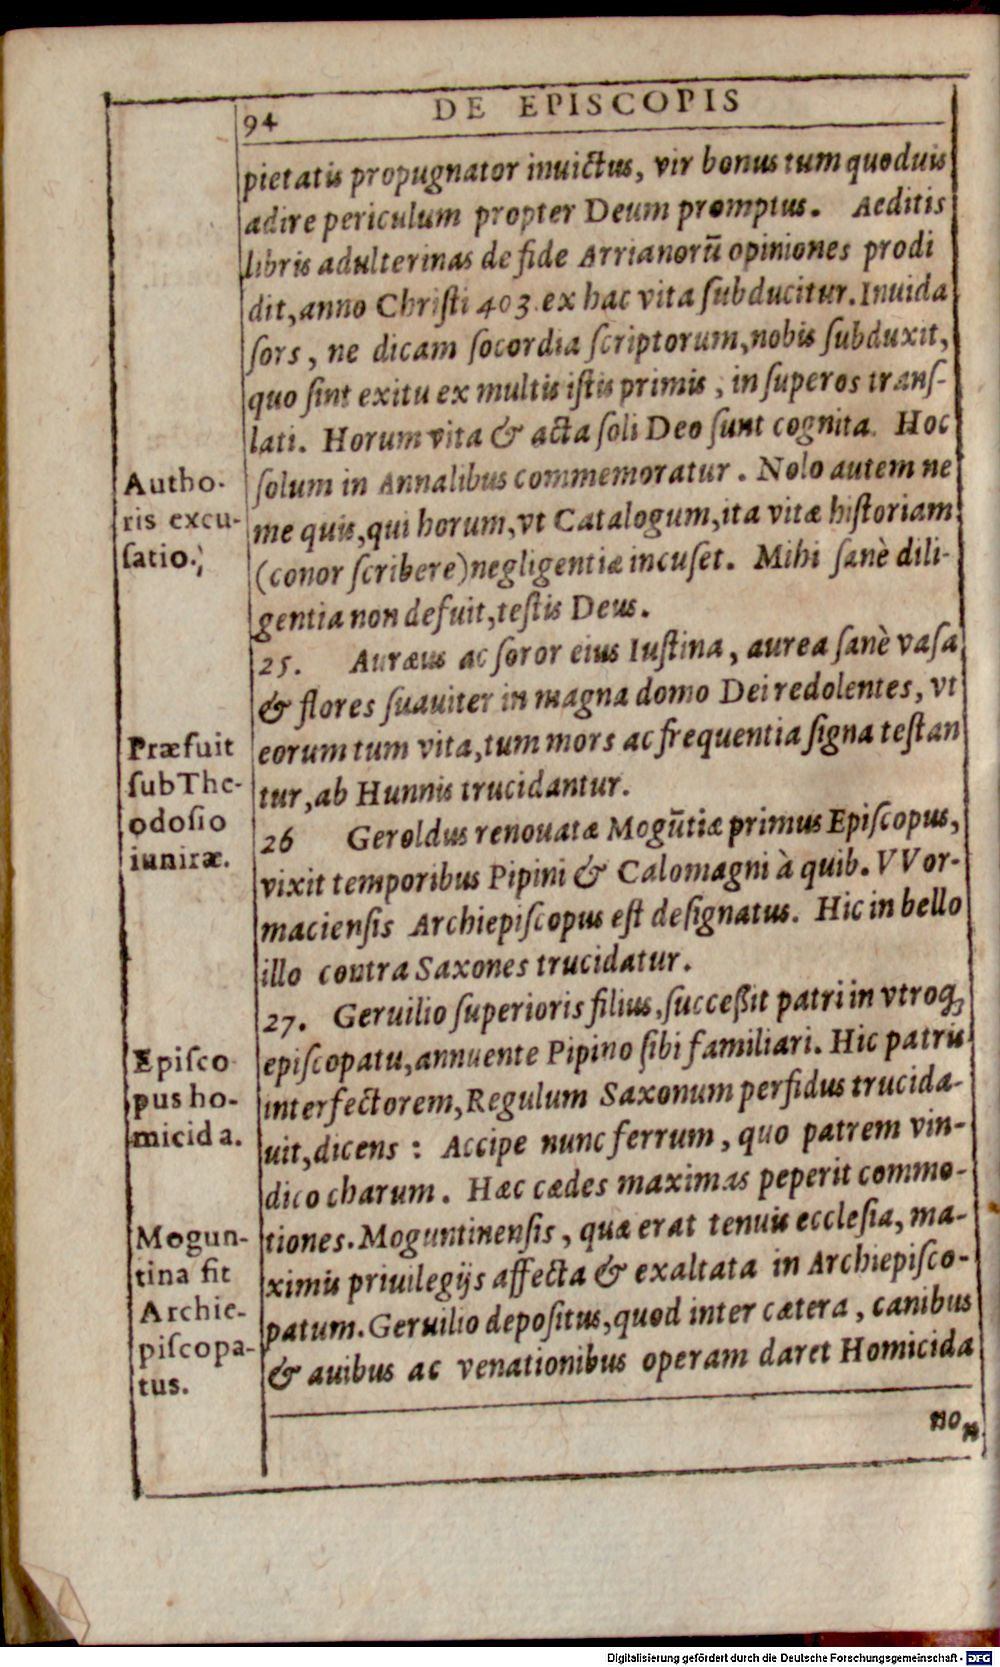 94
DE EPISCOPIS
pietatis propugnator inuictus, vir bonus tum quoduis
adire periculum propter Deum promptus. Aeditis
libris adulterinas de fide Arrianorū opiniones prodi
dit, anno Christi 403. ex hac vita subducitur. Inuida
sors, ne dicam socordia scriptorum, nobis subduxit,
quo sint exitu ex multis istis primis, in superos trans-
lati. Horum vita & acta soli Deo sunt cognita. Hoc
solum in Annalibus commemoratur. Nolo autem ne
me quis, qui horum, vt Catalogum, ita vitæ historiam
(conor scribere) negligentiæ incuset. Mihi sanè dili-
gentia non defuit, testis Deus.
Autho-
ris excu-
satio.
25. Auræus ac soror eius Iustina, aurea sanè vasa
& flores suauiter in magna domo Dei redolentes, vt
eorum tum vita, tum mors ac frequentia signa testan
tur, ab Hunnis trucidantur.
Præfuit
sub The-
odosio
iuniræ.
26 Geroldus renouatæ Mogūtiæ primus Episcopus,
vixit temporibus Pipini & Calomagni à quib. VVor-
maciensis Archiepiscopus est designatus. Hic in bello
illo contra Saxones trucidatur.
27. Geruilio superioris filius, successit patri in vtroq;
episcopatu, annuente Pipino sibi familiari. Hic patris
interfectorem, Regulum Saxonum perfidus trucida-
uit, dicens : Accipe nunc ferrum, quo patrem vin-
dico charum. Hæc cædes maximas peperit commo-
tiones. Moguntinensis, quæ erat tenuis ecclesia, ma-
ximis priuilegijs affecta & exaltata in Archiepisco-
patum. Geruilio depositus, quod inter cætera, canibus
& auibus ac venationibus operam daret Homicida
Episco
pus ho-
micida.
Mogun-
tina fit
Archie-
piscopa-
tus.
non
Digitalisierung gefördert durch die Deutsche Forschungsgemeinschaft - DFG